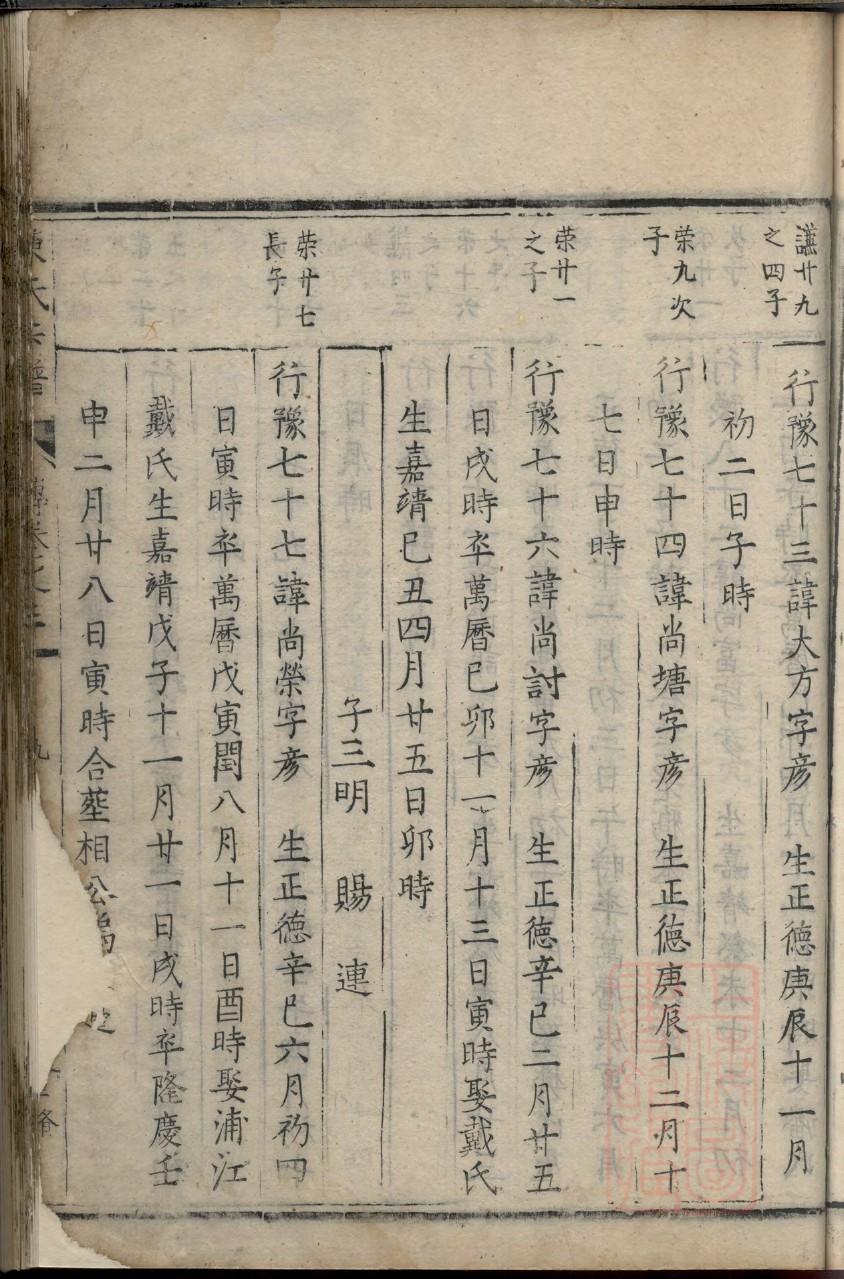 謙廿九
之四子
行豫七十三諱大方字彦　生正德庚辰十一月
初二日子時
荣九次
子
行豫七十四諱尚塘字彦　生正德庚辰十二月十
七日申時
荣廿一
之子
行豫七十六諱尚討字彦　生正德辛巳二月廿五
日戌時卒萬曆巳卯十一月十三日寅時娶戴氏
生嘉靖巳丑四月廿五日卯時
子三明　賜　連
荣廿七
長子
行豫七十七諱尚榮字彦　生正德辛巳六月初四
日寅時卒萬曆戊寅閏八月十一日酉時娶浦江
戴氏生嘉靖戊子十一月廿一日戌時卒隆慶壬
申二月廿八日寅時合塟相公